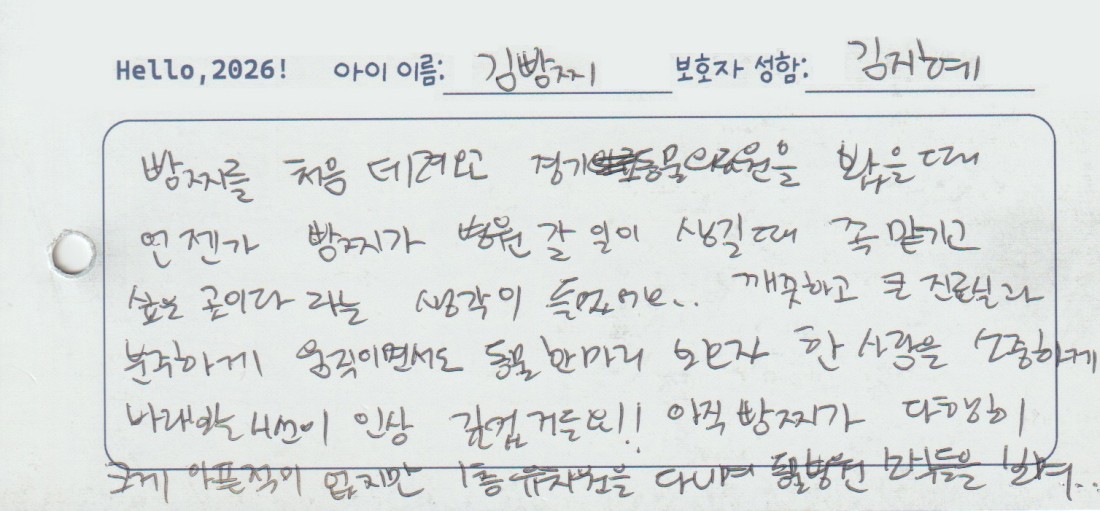 Hello,2026! 아이 이름: 김빵찌 보호자 성함: 김지혜
빵찌를 처음 데려오고 경기동물의료원을 봤을때
언젠가 빵찌가 병원 갈 일이 생길때 꼭 맡기고
싶은 곳이다 라는 생각이 들었어요.. 깨끗하고 큰 진료실과
분주하게 움직이면서도 동물 한마리 보호자 한 사람을 소중하게
바라봐 시선이 인상 깊었거든요!! 아직 빵찌가 다행히
크게 아픈적이 없지만 1층 유치원을 다니며 동물병원 보며..